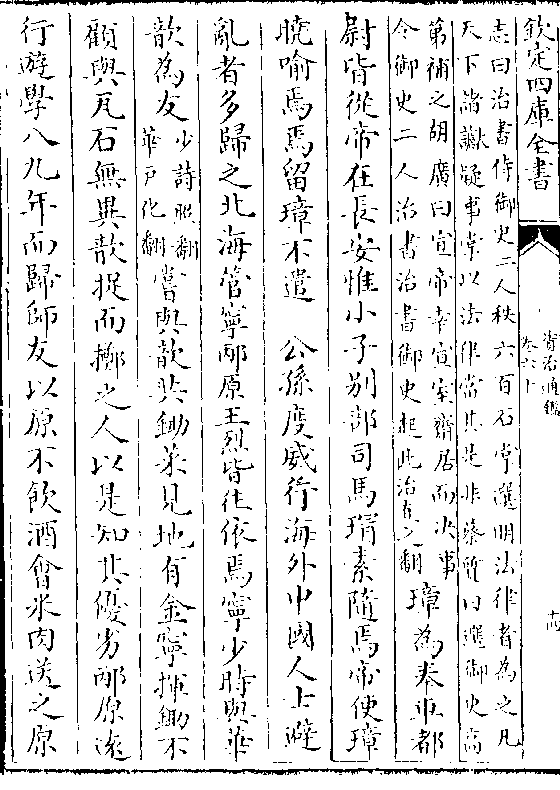 欽定四庫全書
資治通鑑
卷六十
志曰治書侍御史二人秩六百石常選明法律者為之凡
天下諸讞疑事掌以法律當其是非蔡質曰選御史高
第補之胡廣曰宣帝幸宣室齋居而決事
令御史二人治書治書御史起此治直之翻
璋為奉車都
尉皆從帝在長安惟小子别部司馬瑁素隨焉帝使璋
曉喻焉焉留璋不遣　公孫度威行海外中國人士避
亂者多歸之北海管寧邴原王烈皆往依焉寧少時與華
歆為友
少詩照翻
華戶化翻
嘗與歆共鋤菜見地有金寧揮鋤不
顧與瓦石無異歆捉而擲之人以是知其優劣邴原遠
行遊學八九年而歸師友以原不飲酒會米肉送之原